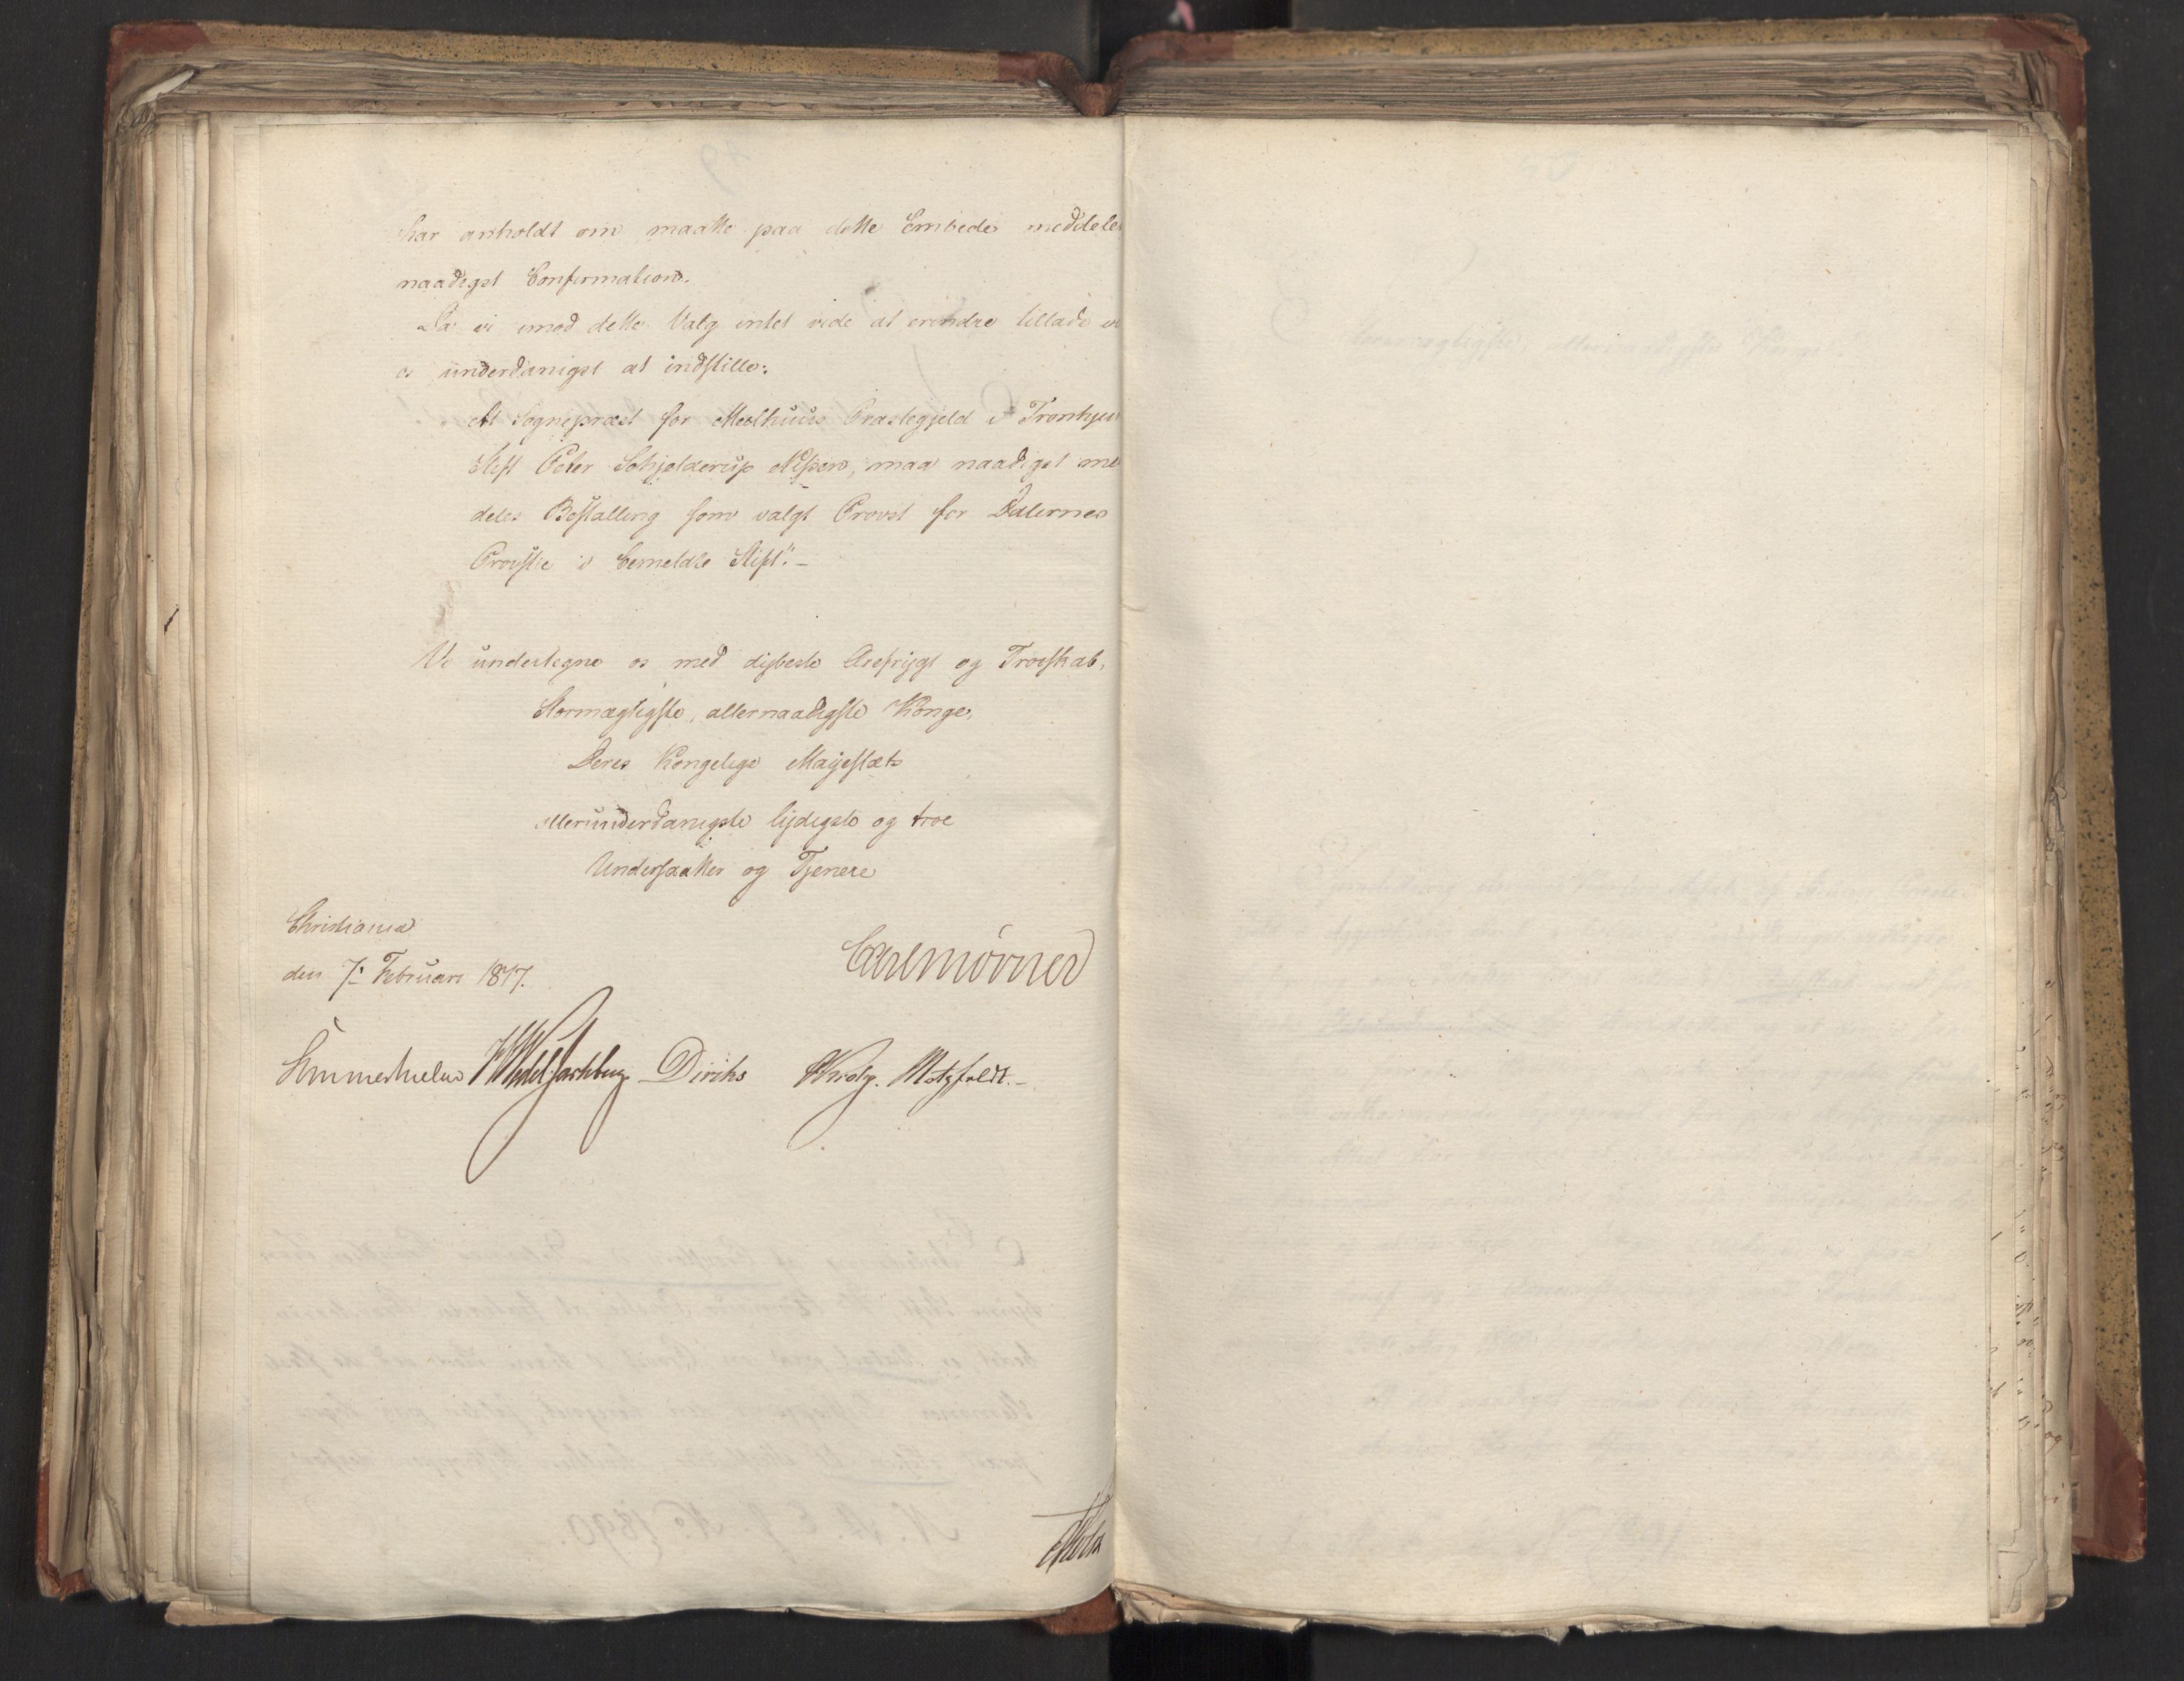 har anholdt om maatte paa dette Embede meddeles
naadigst Confirmation.
Da vi imod dette Valg intet vide at erindre tillade vi
os underdanigst at indstille:
At Sognepræst for Meelhuus Præstegjeld i Tronhjem
Stift Peter Schjelderup Nissen, maa naadigst med
deles Bestalling som valgt Provst for Dalernes
Provstie i bemeldte Stift."-
Vi undertegne os med dybeste Ærefrygt og Troeskab,
Stormægtigste, allernaadigste Konge,
Deres Kongelige Majestæts
allerunderdanigste lydigste og troe
Undersaatter og Tjenere
Christiania
den 7: Februari 1817.
Carl Mörner
Sommerhielm HWedel Jarlsberg Diriks Krog. Motzfeldt.-
Holst